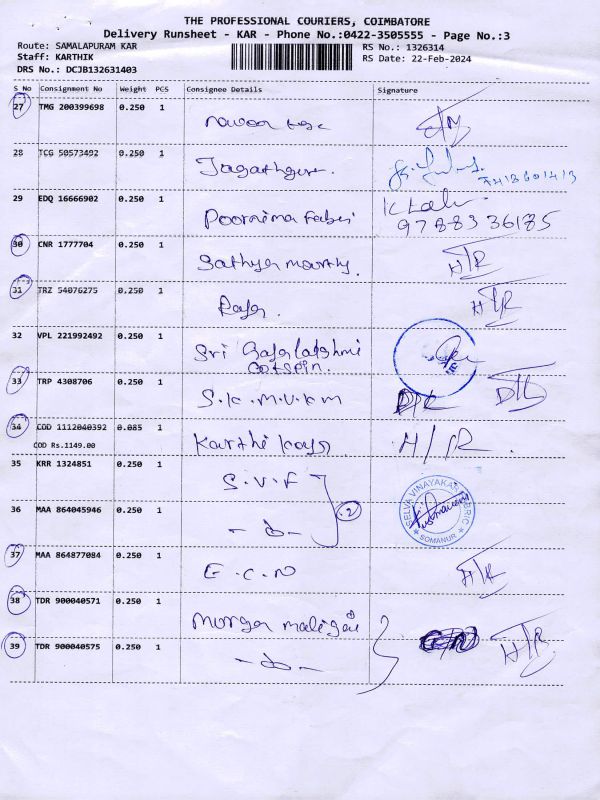 THE PROFESSIONAL COURIERS, COIMBATORE
Delivery Runsheet - KAR - Phone No.:0422-3505555 - Page No.:3
Route: SAMALAPURAM KAR RS No.: 1326314
Staff: KARTHIK RS Date: 22-Feb-2024
DRS No.: DCJB132631403
S No Consignment No Weight PCS Consignee Details Signature
27 TMG 200399698 0.250 1
28 TCG 50573492 0.250 1 Jagathguru.
29 EDQ 16666902 0.250 1 Poornima Fabri K
97883 36185
30 CNR 1777704 0.250 1 Sathya moorthy. H/R
31 TRZ 54076275 0.250 1 Raja. H/R
32 VPL 221992492 0.250 1 Sri Gajalatshmi
cotspin.
33 TRP 4308706 0.250 1 S.K.M.V.K.M D/L
34 COD 1112040392 0.085 1 Karthi kaya H/R.
COD Rs.1149.00
35 KRR 1324851 0.250 1 S.V.F
36 MAA 864045946 0.250 1 - do - 2 SELVA VINAYAKA FABRIC SOMANUR
37 MAA 864877084 0.250 1 E.C.N H/R
38 TDR 900040571 0.250 1 Murga maligai
39 TDR 900040575 0.250 1 - do - H/R